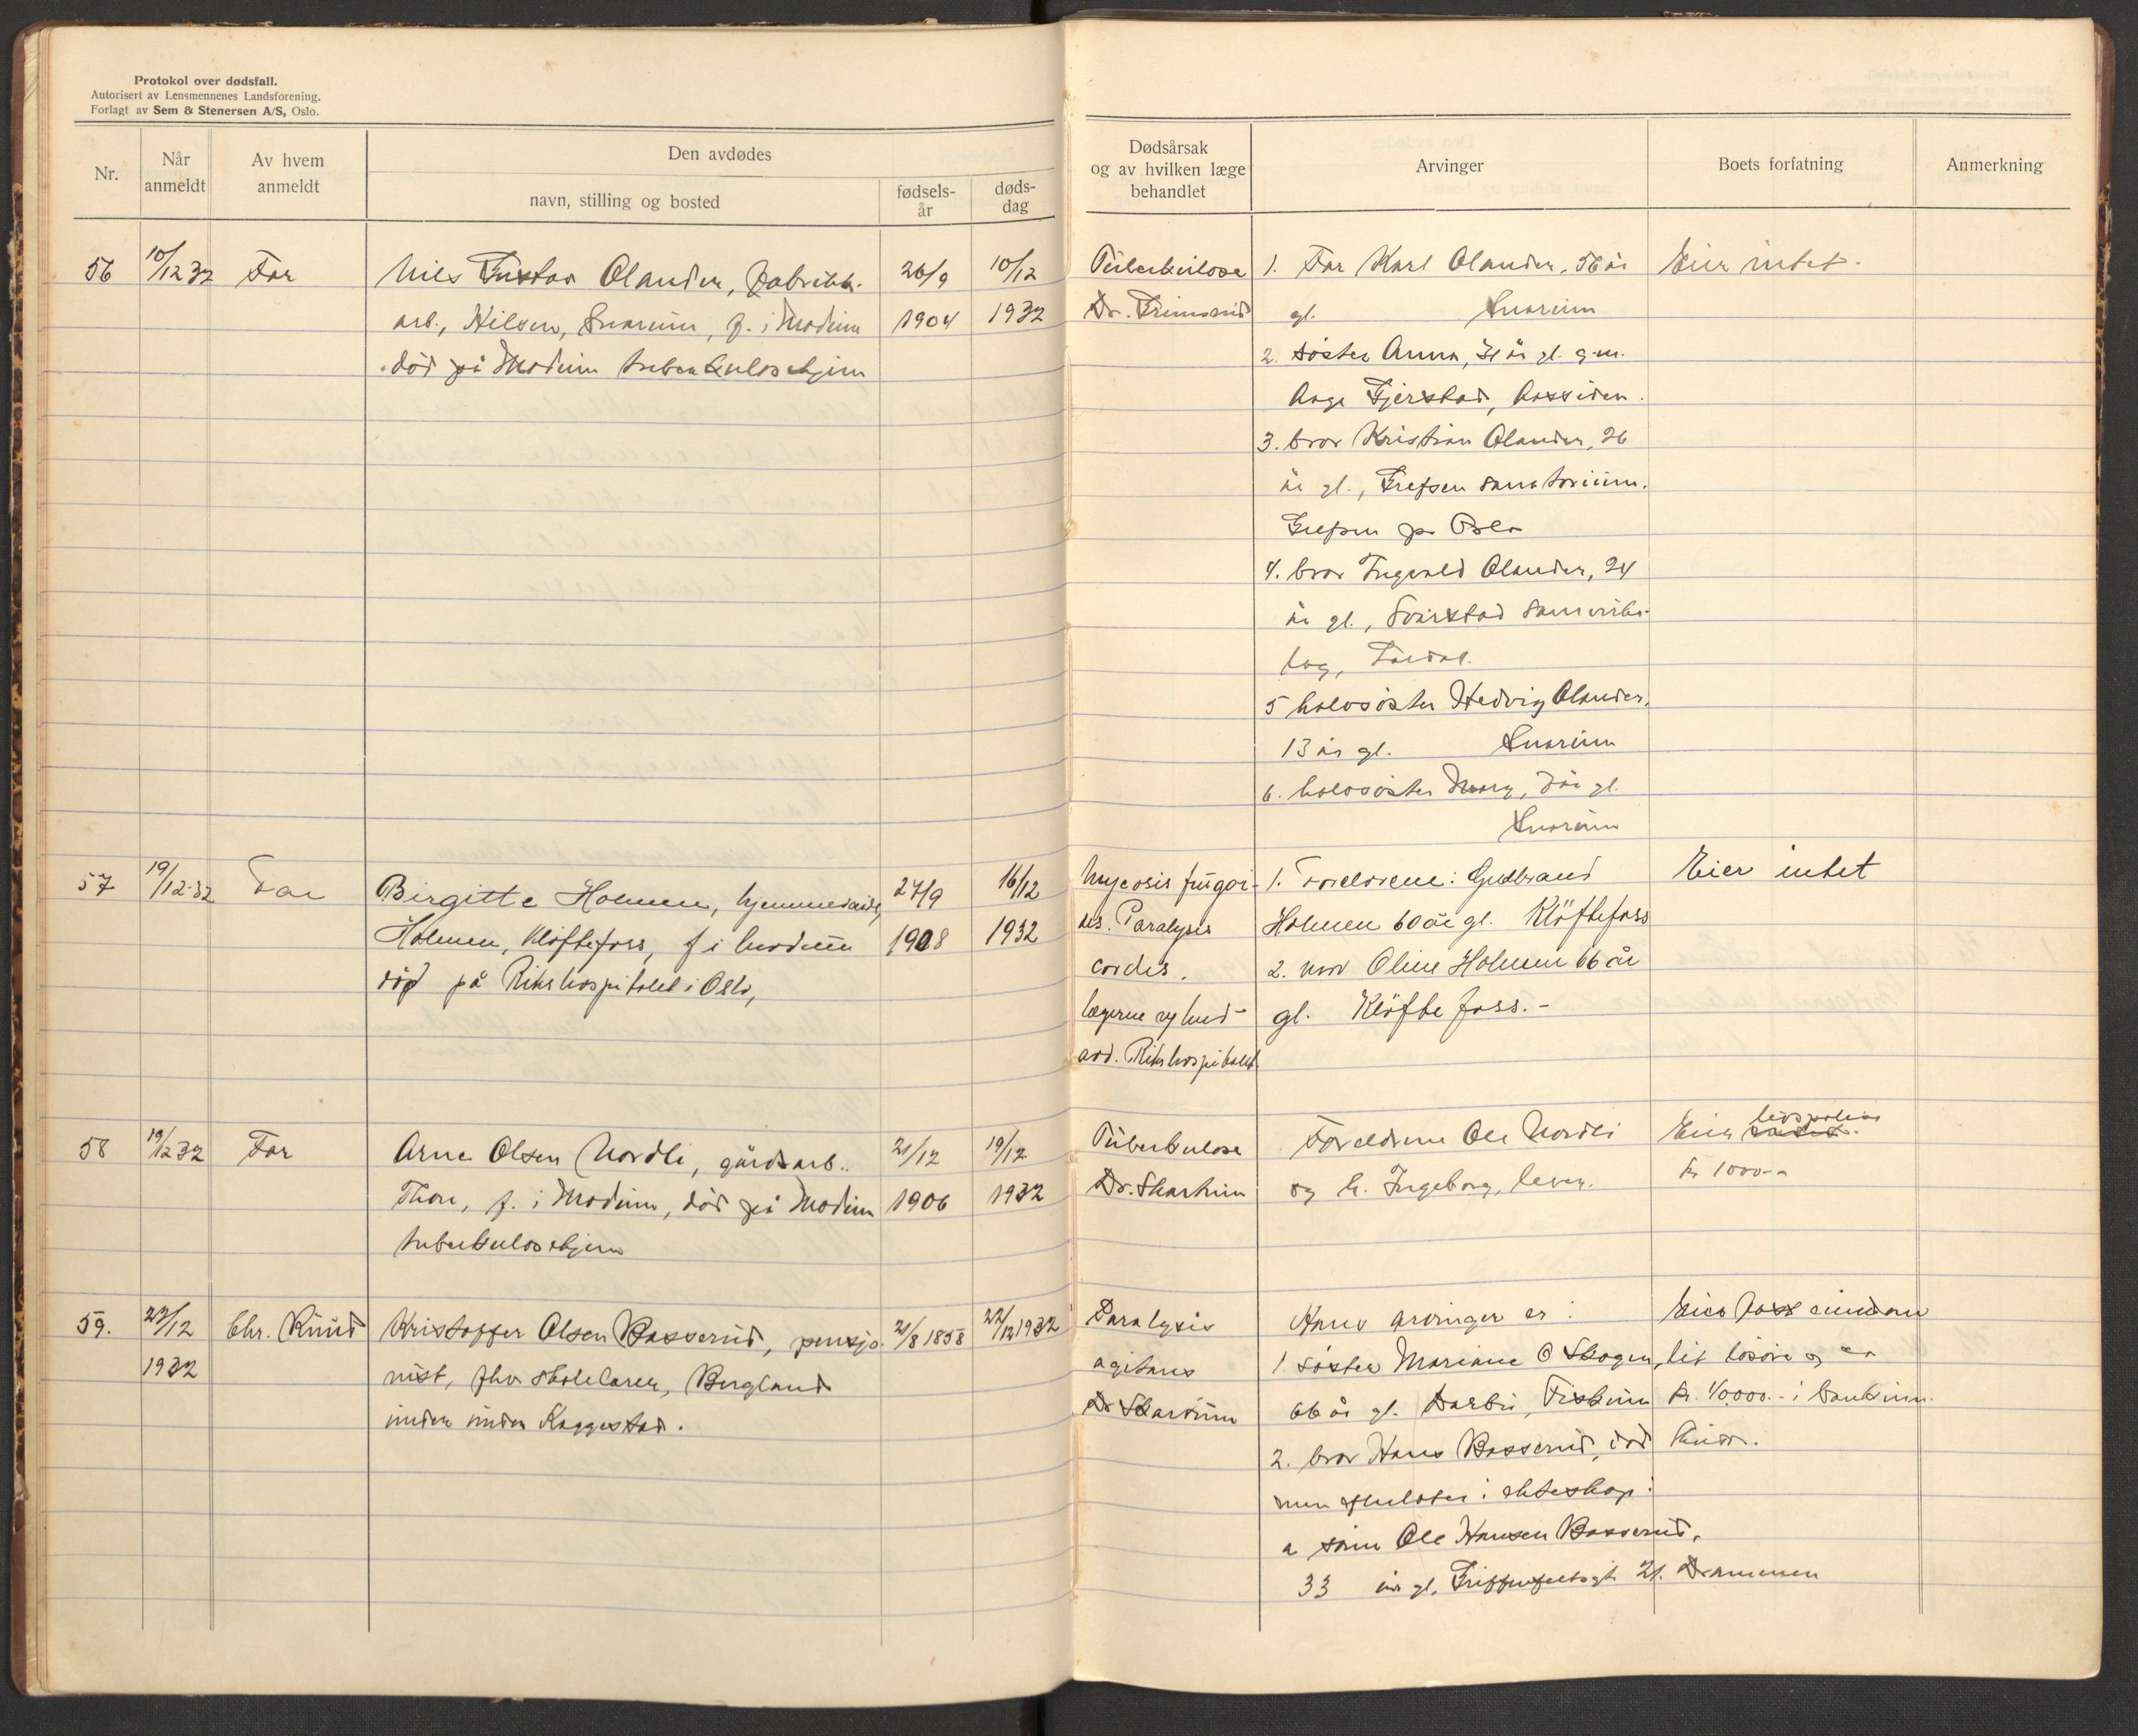 Protokol over dødsfall.
Autorisert av Lensmennenes Landsforening.
Forlagt av Sem & Stenersen A/S, Oslo.
Nr.
Når anmeldt
Av hvem anmeldt
Den avdødes
navn, stilling og bosted
fødsels-år
døds-dag
Dødsårsak og av hvilken læge behandlet
Arvinger
Boets forfatning
Anmerkning
56 10/12 32 Far
Nils Gustav Olander, fabrikk-
arb., Nilsen, Snarum, f. i Modum
død på Modum tuberkulosehjem
26/9 1904
10/12 1932
Tuberkulose
Dr.
1. Far Karl Olander, 56 år
gl. Snarum
2. søster Anna, 31 år gl. g.m.
Aage Fjerstad, Aassiden.
3. bror Kristian Olander, 26
år gl., Grefsen sanatorium.
Grefsen pr Oslo
4. bror Ingvald Olander, 24
år gl., Svarstad samvirke-
lag,
5 halvsøster Hedvig Olander,
13 år gl. Snarum
6. halvsøster Mary, år gl.
Snarum
Eier intet.
57 19/12-32 Far
Birgitte Holmen, hjemmeværende,
Holmen, Kløftefoss, f i Modum
død på Rikshospitalet i Oslo,
27/9 1908
16/12 1932
Mycosis fungoi-
des. Paralysis
cordis.
lægerne ved hud-
avd. Rikshospitalet
1. Foreldrene: Gudbrand
Holmen 60 år gl. Kløftefoss
2. mor Oline Holmen 66 år
gl. Kløftefoss.-
Eier intet
58 19/12 32 Far
Arne Olsen Nordli, gårdsarb.
Thon, f. i Modum, død på Modum
tuberkulosehjem
21/12 1906
19/12 1932
Tuberkulose
Dr. Skartum
Foreldrene Ole Nordli
og h. Ingeborg, lever.
Eier livspolise
kr 1000--
59. 23/12 1932 Chr. Ruud
Kristoffer Olsen Basserud, pensjo-
nist, fhv skolelærer, Bergland
under Kaggestad.
21/8 1858
22/12 1932
Paralysis
agitans
Dr Skartum
Hans arvinger er:
1. søster Mariane O Skogen,
66 år gl. Darbu, Fiskum
2. bror Hans Basserud, død
men efterlater i ekteskap:
a sønn Ole Hansen Basserud,
33 år gl. Griffenfeltsgt 21. Drammen
Eier fast eiendom
lit løsøre og ca
kr. 10,000.- i bankinn-
skudd.